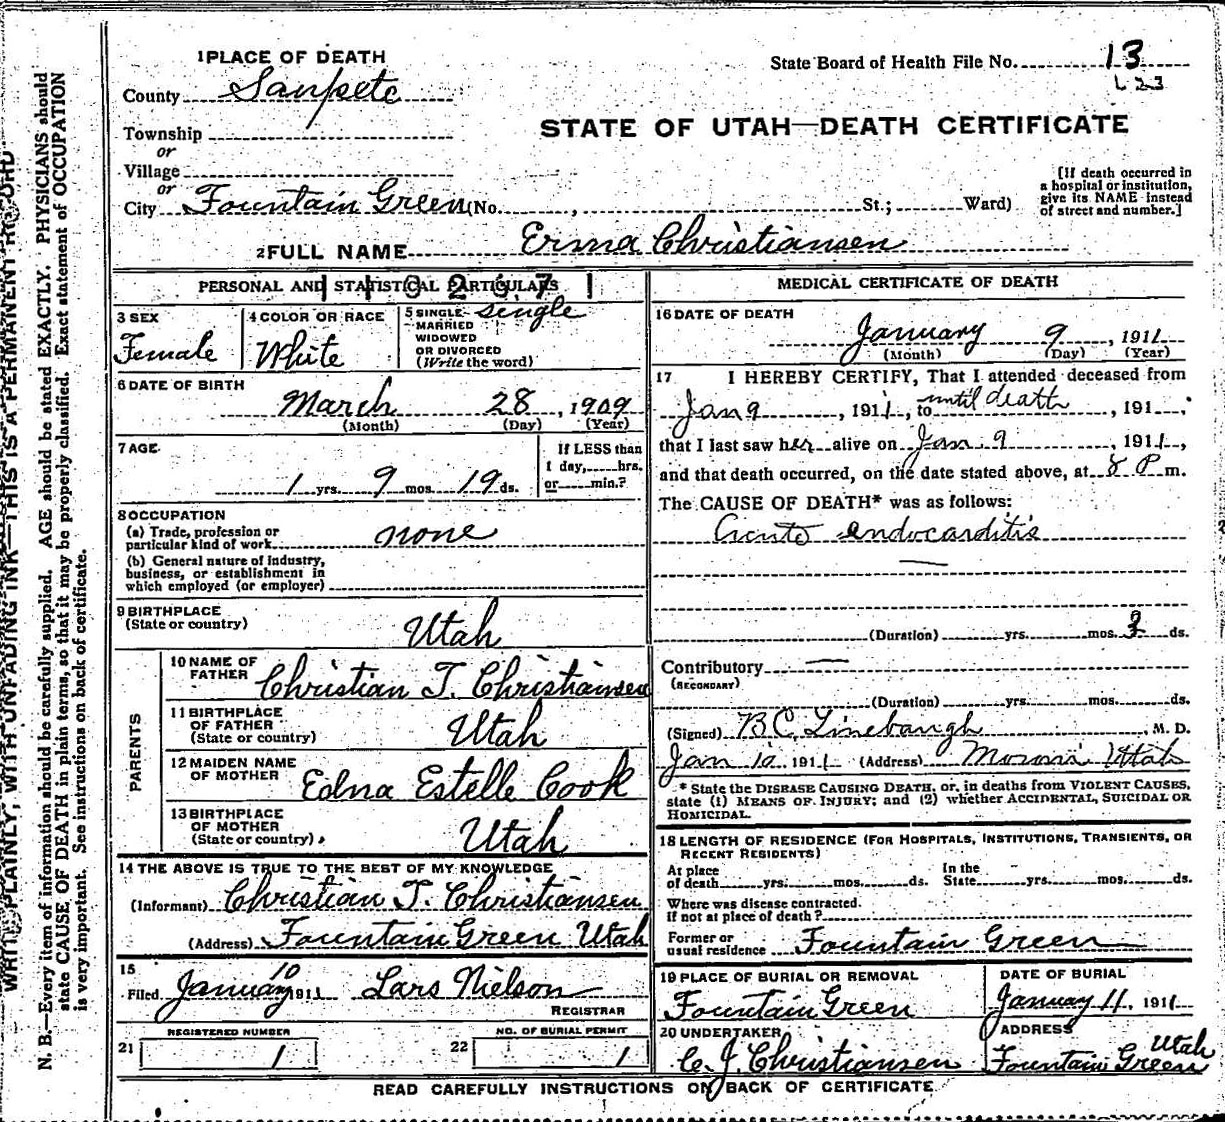 WRITE PLAINLY, WITH UNFADING INK—THIS IS A PERMANENT RECORD
N. B.—Every item of information should be carefully supplied. AGE should be stated EXACTLY. PHYSICIANS should
state CAUSE OF DEATH in plain terms, so that it may be properly classified. Exact statement of OCCUPATION
is very important. See instructions on back of certificate.
1 PLACE OF DEATH
County Sanpete
Township
or
Village
or
City Fountain Green (No. , St.; Ward)
State Board of Health File No. 13
STATE OF UTAH—DEATH CERTIFICATE
[If death occurred in
a hospital or institution,
give its NAME instead
of street and number.]
2 FULL NAME Erma Christiansen
PERSONAL AND STATISTICAL PARTICULARS
3 SEX
Female
4 COLOR OR RACE
White
5 SINGLE single
MARRIED
WIDOWED
OR DIVORCED
(Write the word)
6 DATE OF BIRTH
March 28, 1909
(Month) (Day) (Year)
7 AGE
1 yrs. 9 mos. 19 ds.
If LESS than
1 day, hrs.
or min.?
8 OCCUPATION
(a) Trade, profession or
particular kind of work none
(b) General nature of industry,
business, or establishment in
which employed (or employer)
9 BIRTHPLACE
(State or country)
Utah
PARENTS
10 NAME OF
FATHER Christian T. Christiansen
11 BIRTHPLACE
OF FATHER
(State or country) Utah
12 MAIDEN NAME
OF MOTHER Edna Estelle Cook
13 BIRTHPLACE
OF MOTHER
(State or country) Utah
14 THE ABOVE IS TRUE TO THE BEST OF MY KNOWLEDGE
(Informant) Christian T. Christiansen
(Address) Fountain Green Utah
15
Filed January 10 1911 Lars Nielson
REGISTRAR
REGISTERED NUMBER
21 1
NO. OF BURIAL PERMIT
22 1
MEDICAL CERTIFICATE OF DEATH
16 DATE OF DEATH
January 9, 1911
(Month) (Day) (Year)
17 I HEREBY CERTIFY, That I attended deceased from
Jan 9, 1911, to until death, 191
that I last saw her alive on Jan. 9, 1911,
and that death occurred, on the date stated above, at 8 P m.
The CAUSE OF DEATH* was as follows:
Acute endocarditis
(Duration) yrs. mos. 3 ds.
Contributory
(SECONDARY)
(Duration) yrs. mos. ds.
(Signed) B.C. Linebaugh, M. D.
Jan 10, 1911 (Address) Moroni Utah
* State the DISEASE CAUSING DEATH, or, in deaths from VIOLENT CAUSES,
state (1) MEANS OF INJURY; and (2) whether ACCIDENTAL, SUICIDAL OR
HOMICIDAL.
18 LENGTH OF RESIDENCE (FOR HOSPITALS, INSTITUTIONS, TRANSIENTS, OR
RECENT RESIDENTS)
At place
of death yrs. mos. ds.
In the
State yrs. mos. ds.
Where was disease contracted
if not at place of death?
Former or
usual residence Fountain Green
19 PLACE OF BURIAL OR REMOVAL
Fountain Green
DATE OF BURIAL
January 11, 1911
20 UNDERTAKER
C. J. Christiansen
ADDRESS
Utah
Fountain Green
READ CAREFULLY INSTRUCTIONS ON BACK OF CERTIFICATE